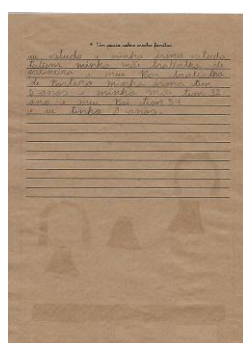 * Um pouco sobre minha família
eu estudo e minha irmã estuda
tatem minha mãe trabalha de
e meu Pai trabalha
de Porteiro minha irmã tem
6 anos e minha mãe tem 32
ano e meu Pai tem 34
e eu tenho 8 anos.